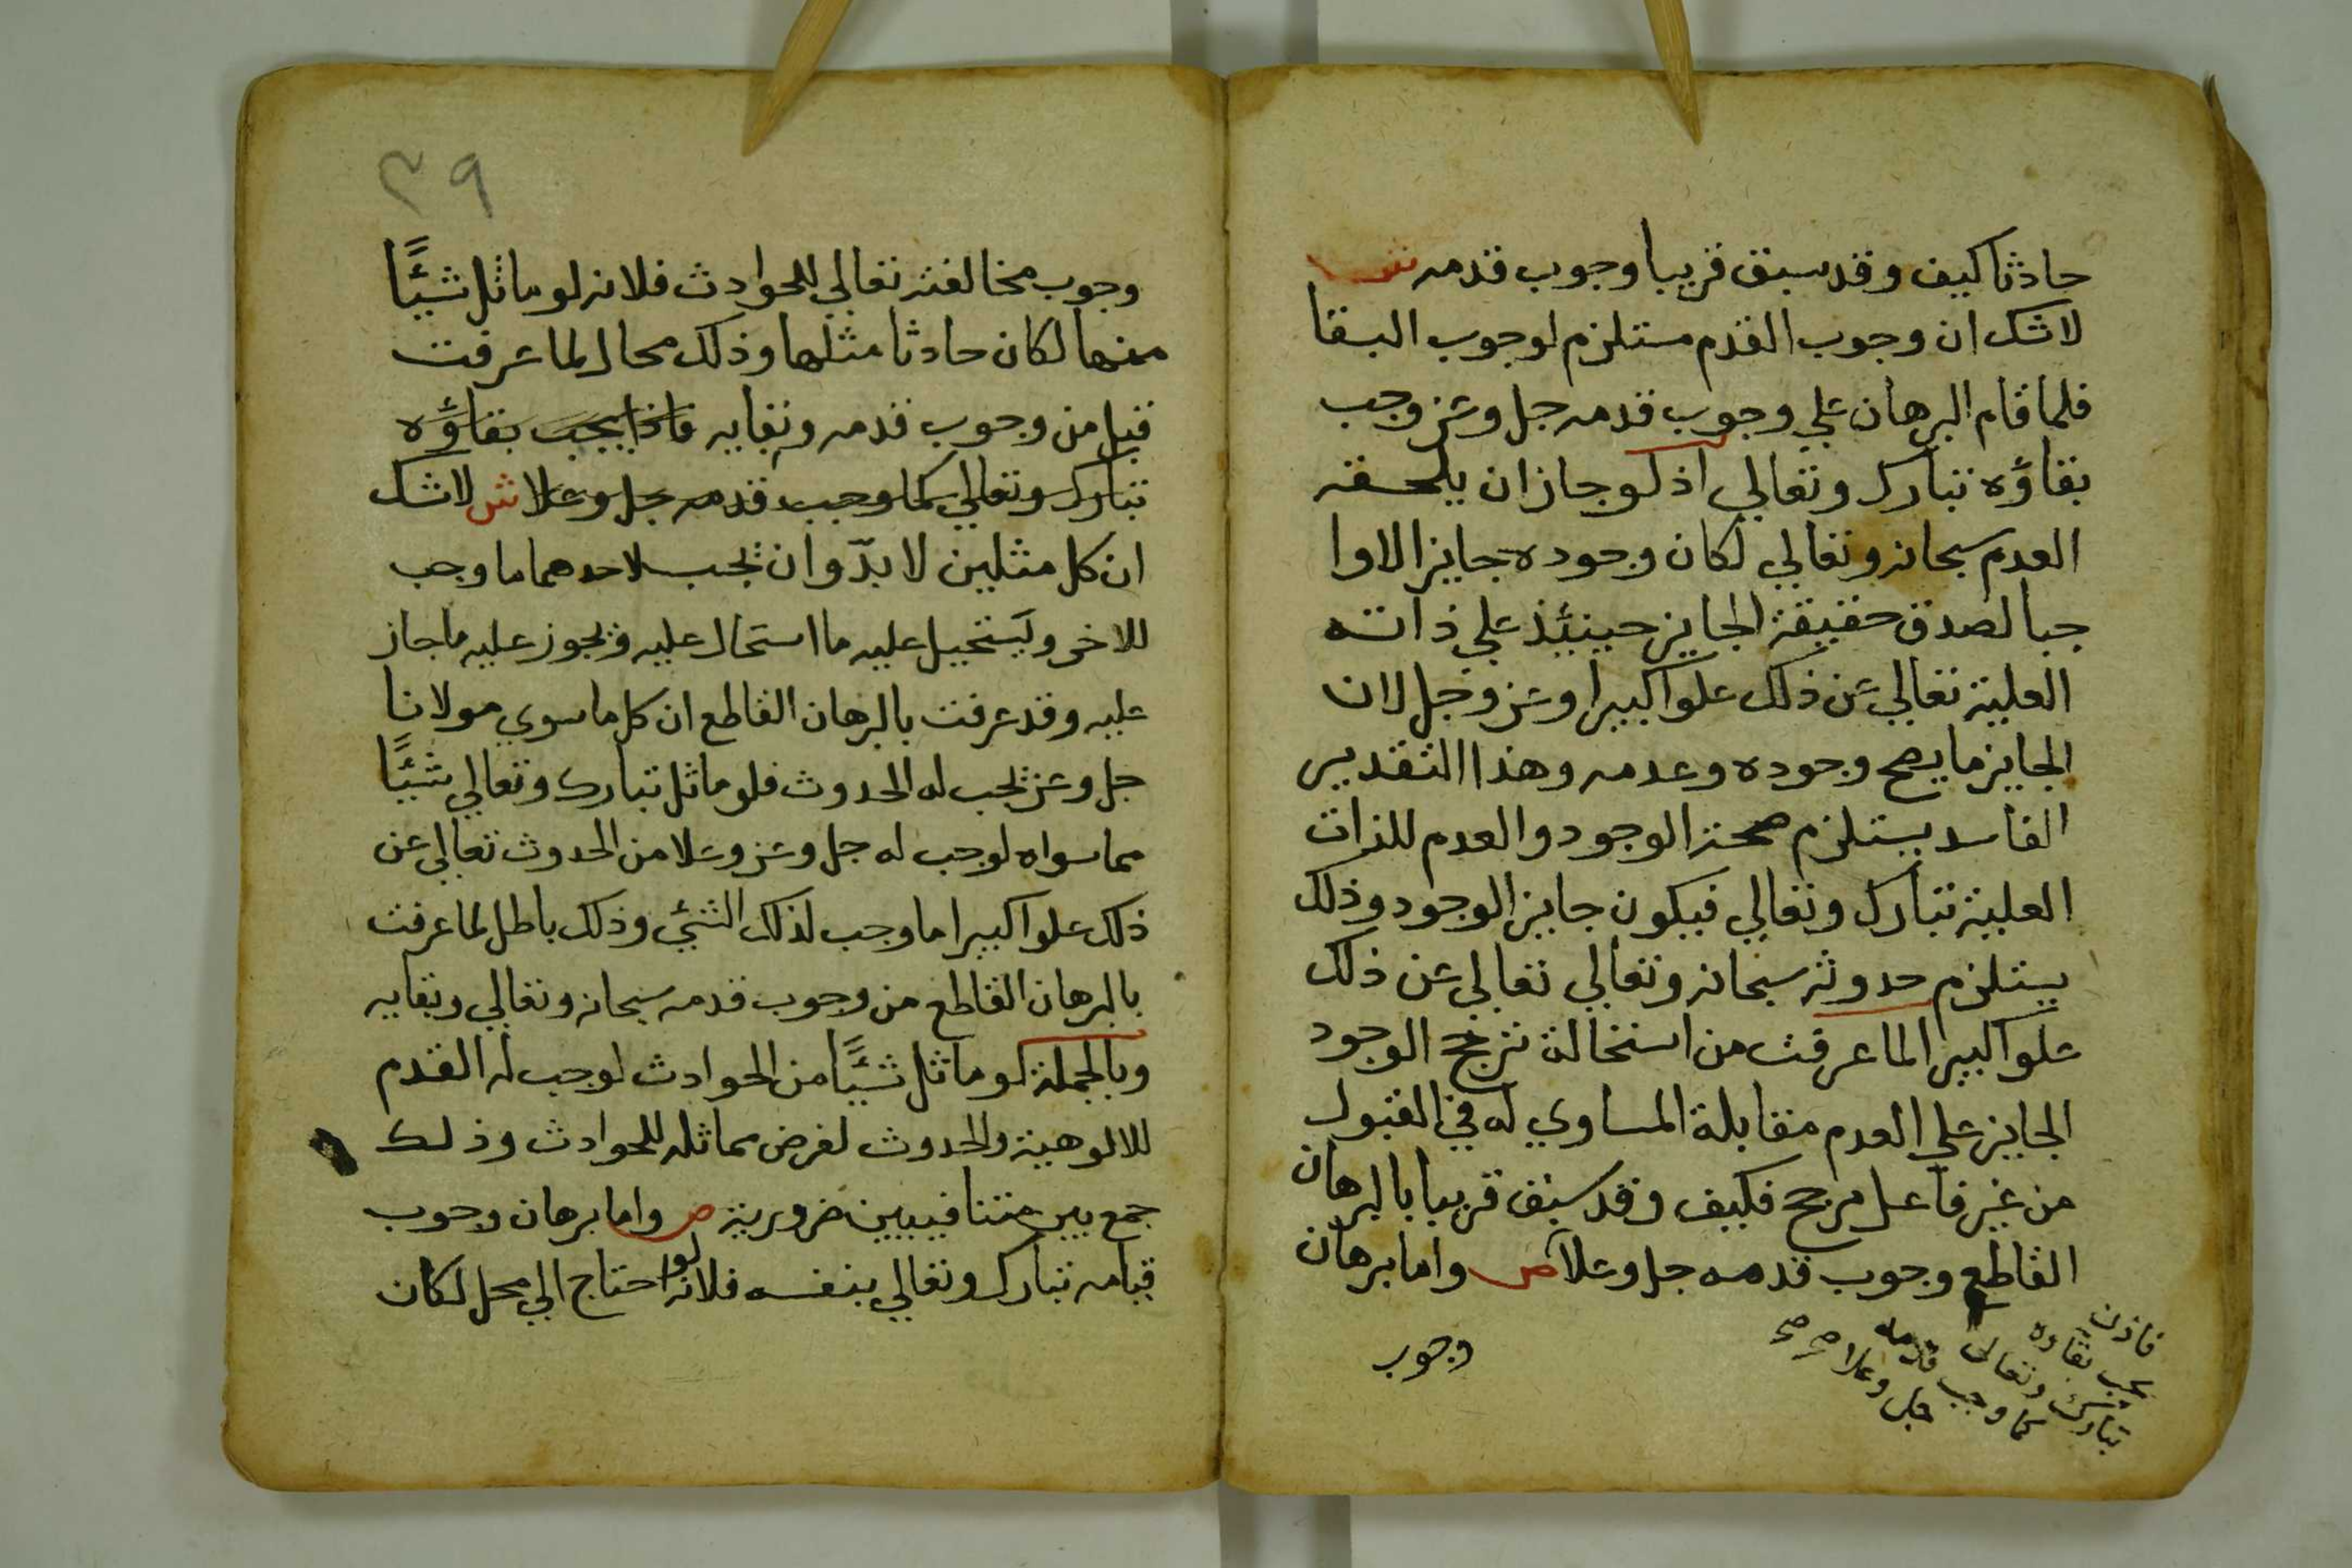 حادثا كيف وقد سبق قريبا وجوب قدمه ش
لاشك ان وجوب القدم مستلزم لوجوب البقا
فلما قام البرهان علي وجوب قدمه جل وعز وجب
بقاؤه تبارك وتعالي اذ لو جاز ان يلحقه
العدم سبحانه وتعالي لكان وجوده جايز الاوا
جبا لصدق حقيقة الجايز حينئذ علي ذاته
العلية تعالي عن ذلك علوا كبيرا وعز وجل لان
الجايز ما يصح وجوده وعدمه وهذا التقدير
الفاسد يستلزم صحة الوجود والعدم للذات
العلية تبارك وتعالي فيكون جايز الوجود وذلك
يستلزم حدوثه سبحانه وتعالي تعالي عن ذلك
علوا كبيرا لما عرفت من استحالة ترجح الوجود
الجايز علي العدم مقابلة المساوي له في القبول
من غير فاعل مرجح فكيف وقد سبق قريبا بالبرهان
القاطع وجوب قدمه جل وعلا ص واما برهان
فاذن
يجب بقاؤه
تبارك وتعالى
كما وجب قدمه
جل وعلا صح صح
وجوب
٣٩
وجوب مخالفته تعالي للحوادث فلانه لو ماثل شيئًا
منها لكان حادثا مثلها وذلك محال لما عرفت
قبل من وجوب قدمه وبقايه فاذا يجب بقاؤه
تبارك وتعالي كما وجب قدمه جل وعلا ش لاشك
ان كل مثلين لا بدّ وان يجب لاحدهما ما وجب
للاخر ويستحيل عليه ما استحال عليه ويجوز عليه ما جاز
عليه وقد عرفت بالبرهان القاطع ان كل ما سوي مولانا
جل وعز يجب له الحدوث فلو ماثل تبارك وتعالي شيئًا
مما سواه لوجب له جل وعز وعلا من الحدوث تعالي عن
ذلك علوا كبيرا ما وجب لذلك الشئ وذلك باطل لما عرفت
بالبرهان القاطع من وجوب قدمه سبحانه وتعالي وبقايه
وبالجملة لو ماثل شيئًا من الحوادث لوجب له القدم
للالوهية والحدوث لفرض مماثله للحوادث وذلك
جمع بين متنافيين ضرورية ص واما برهان وجوب
قيامه تبارك وتعالي بنفسه فلانه لو احتاج الي محل لكان